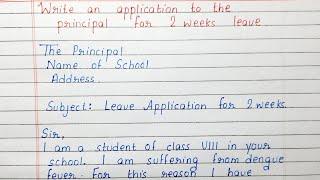 Write an application to the
principal for 2 weeks leave.
The Principal
Name of School
Address.
Subject: Leave Application for 2 weeks.
Sir,
I am a student of class VIII in your
school. I am suffering from dengue
fever. For this reason I have